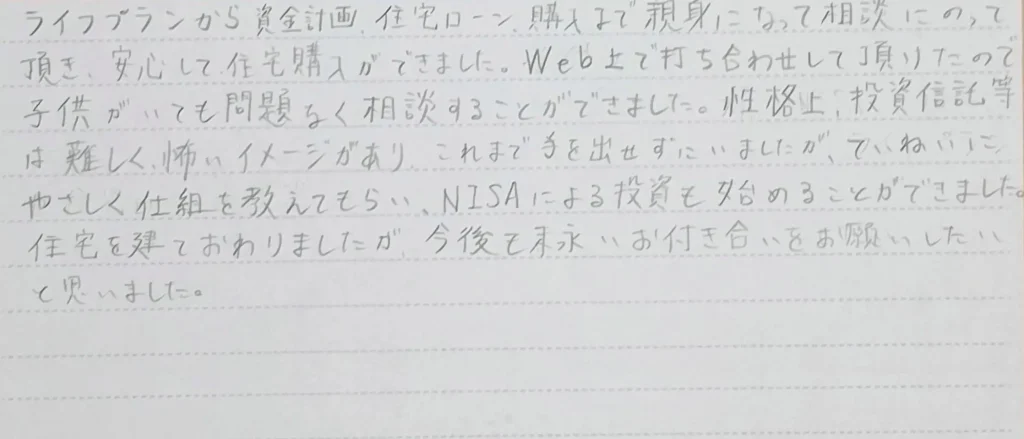 ライフプランから資金計画、住宅ローン、購入まで親身になって相談にのって
頂き、安心して住宅購入ができました。Web上で打ち合わせして頂けたので
子供がいても問題なく相談することができました。性格上、投資信託等
は難しく、怖いイメージがあり、これまで手を出せずにいましたが、ていねいに
やさしく仕組を教えてもらい、NISAによる投資も始めることができました。
住宅を建ておわりましたが、今後も末永いお付き合いをお願いしたい
と思いました。